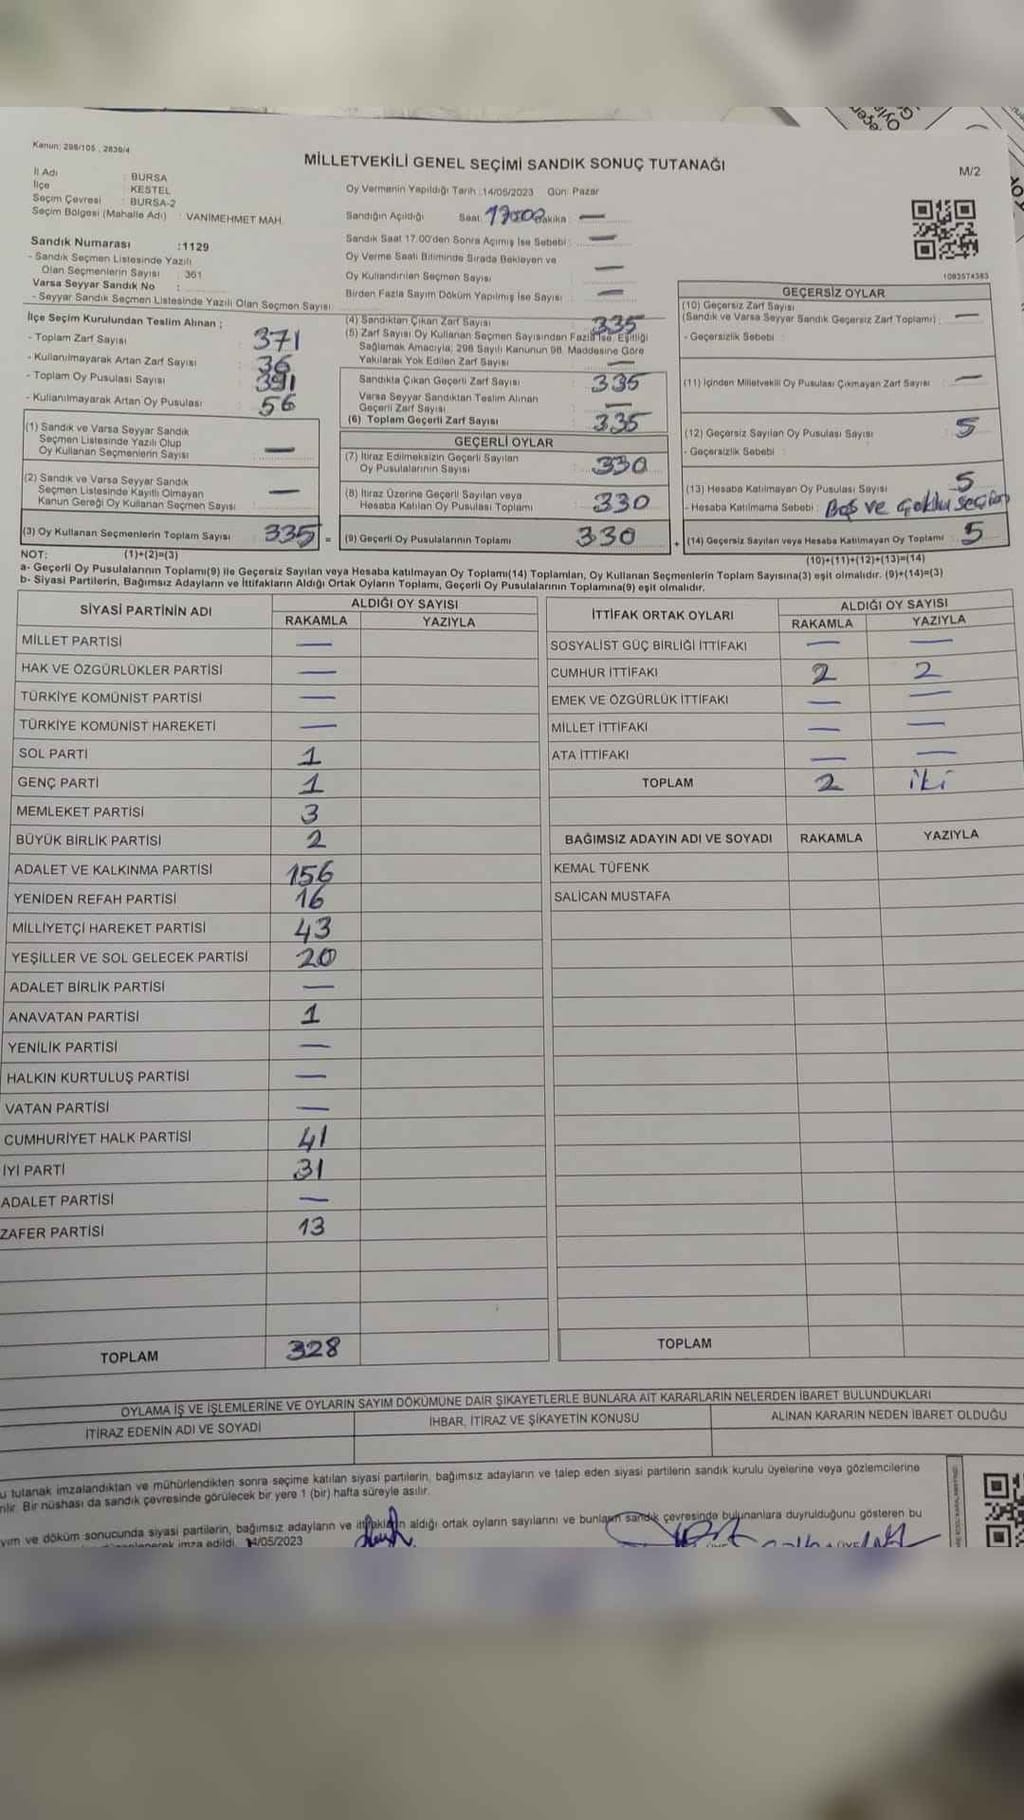 Kanun: 298/105 , 2839/4
MİLLETVEKİLİ GENEL SEÇİMİ SANDIK SONUÇ TUTANAĞI
M/2
İl Adı : BURSA
İlçe : KESTEL
Seçim Çevresi : BURSA-2
Seçim Bölgesi (Mahalle Adı) : VANİMEHMET MAH.
Oy Vermenin Yapıldığı Tarih :14/05/2023 Gün: Pazar
Sandığın Açıldığı Saat: Dakika : —
Sandık Saat 17.00'den Sonra Açılmış İse Sebebi : —
Oy Verme Saati Bitiminde Sırada Bekleyen ve
Oy Kullandırılan Seçmen Sayısı : —
Birden Fazla Sayım Döküm Yapılmış İse Sayısı : —
1083574383
Sandık Numarası :1129
- Sandık Seçmen Listesinde Yazılı
Olan Seçmenlerin Sayısı : 361
Varsa Seyyar Sandık No :
- Seyyar Sandık Seçmen Listesinde Yazılı Olan Seçmen Sayısı :
İlçe Seçim Kurulundan Teslim Alınan ;
- Toplam Zarf Sayısı : 371
- Kullanılmayarak Artan Zarf Sayısı : 36
- Toplam Oy Pusulası Sayısı : 391
- Kullanılmayarak Artan Oy Pusulası : 56
(1) Sandık ve Varsa Seyyar Sandık
Seçmen Listesinde Yazılı Olup
Oy Kullanan Seçmenlerin Sayısı : —
(2) Sandık ve Varsa Seyyar Sandık
Seçmen Listesinde Kayıtlı Olmayan
Kanun Gereği Oy Kullanan Seçmen Sayısı : —
(3) Oy Kullanan Seçmenlerin Toplam Sayısı : 335 =
(4) Sandıktan Çıkan Zarf Sayısı : 335
(5) Zarf Sayısı Oy Kullanan Seçmen Sayısından Fazla İse, Eşitliği
Sağlamak Amacıyla; 298 Sayılı Kanunun 98. Maddesine Göre
Yakılarak Yok Edilen Zarf Sayısı : —
Sandıkta Çıkan Geçerli Zarf Sayısı : 335
Varsa Seyyar Sandıktan Teslim Alınan
Geçerli Zarf Sayısı : —
(6) Toplam Geçerli Zarf Sayısı : 335
GEÇERLİ OYLAR
(7) İtiraz Edilmeksizin Geçerli Sayılan
Oy Pusulalarının Sayısı : 330
(8) İtiraz Üzerine Geçerli Sayılan veya
Hesaba Katılan Oy Pusulası Toplamı : 330
(9) Geçerli Oy Pusulalarının Toplamı : 330 +
GEÇERSİZ OYLAR
(10) Geçersiz Zarf Sayısı
(Sandık ve Varsa Seyyar Sandık Geçersiz Zarf Toplamı) : —
- Geçersizlik Sebebi :
(11) İçinden Milletvekili Oy Pusulası Çıkmayan Zarf Sayısı : —
(12) Geçersiz Sayılan Oy Pusulası Sayısı : 5
- Geçersizlik Sebebi :
(13) Hesaba Katılmayan Oy Pusulası Sayısı : 5
- Hesaba Katılmama Sebebi : Boş ve çoklu seçim
(14) Geçersiz Sayılan veya Hesaba Katılmayan Oy Toplamı : 5
NOT: (1)+(2)=(3)
(10)+(11)+(12)+(13)=(14)
a- Geçerli Oy Pusulalarının Toplamı(9) ile Geçersiz Sayılan veya Hesaba katılmayan Oy Toplamı(14) Toplamları, Oy Kullanan Seçmenlerin Toplam Sayısına(3) eşit olmalıdır. (9)+(14)=(3)
b- Siyasi Partilerin, Bağımsız Adayların ve İttifakların Aldığı Ortak Oyların Toplamı, Geçerli Oy Pusulalarının Toplamına(9) eşit olmalıdır.
SİYASİ PARTİNİN ADI
ALDIĞI OY SAYISI
RAKAMLA YAZIYLA
MİLLET PARTİSİ —
HAK VE ÖZGÜRLÜKLER PARTİSİ —
TÜRKİYE KOMÜNİST PARTİSİ —
TÜRKİYE KOMÜNİST HAREKETİ —
SOL PARTİ 1
GENÇ PARTİ 1
MEMLEKET PARTİSİ 3
BÜYÜK BİRLİK PARTİSİ 2
ADALET VE KALKINMA PARTİSİ 156
YENİDEN REFAH PARTİSİ 16
MİLLİYETÇİ HAREKET PARTİSİ 43
YEŞİLLER VE SOL GELECEK PARTİSİ 20
ADALET BİRLİK PARTİSİ —
ANAVATAN PARTİSİ 1
YENİLİK PARTİSİ —
HALKIN KURTULUŞ PARTİSİ —
VATAN PARTİSİ —
CUMHURİYET HALK PARTİSİ 41
İYİ PARTİ 31
ADALET PARTİSİ —
ZAFER PARTİSİ 13
TOPLAM 328
İTTİFAK ORTAK OYLARI
ALDIĞI OY SAYISI
RAKAMLA YAZIYLA
SOSYALİST GÜÇ BİRLİĞİ İTTİFAKI — —
CUMHUR İTTİFAKI 2 2
EMEK VE ÖZGÜRLÜK İTTİFAKI — —
MİLLET İTTİFAKI — —
ATA İTTİFAKI — —
TOPLAM 2 iki
BAĞIMSIZ ADAYIN ADI VE SOYADI RAKAMLA YAZIYLA
KEMAL TÜFENK
SALİCAN MUSTAFA
TOPLAM
OYLAMA İŞ VE İŞLEMLERİNE VE OYLARIN SAYIM DÖKÜMÜNE DAİR ŞİKAYETLERLE BUNLARA AİT KARARLARIN NELERDEN İBARET BULUNDUKLARI
İTİRAZ EDENİN ADI VE SOYADI
İHBAR, İTİRAZ VE ŞİKAYETİN KONUSU
ALINAN KARARIN NEDEN İBARET OLDUĞU
tutanak imzalandıktan ve mühürlendikten sonra seçime katılan siyasi partilerin, bağımsız adayların ve talep eden siyasi partilerin sandık kurulu üyelerine veya gözlemcilerine
Bir nüshası da sandık çevresinde görülecek bir yere 1 (bir) hafta süreyle asılır.
ve döküm sonucunda siyasi partilerin, bağımsız adayların ve ittifakların aldığı ortak oyların sayılarını ve bunların sandık çevresinde bulunanlara duyrulduğunu gösteren bu
imza edildi. 14/05/2023